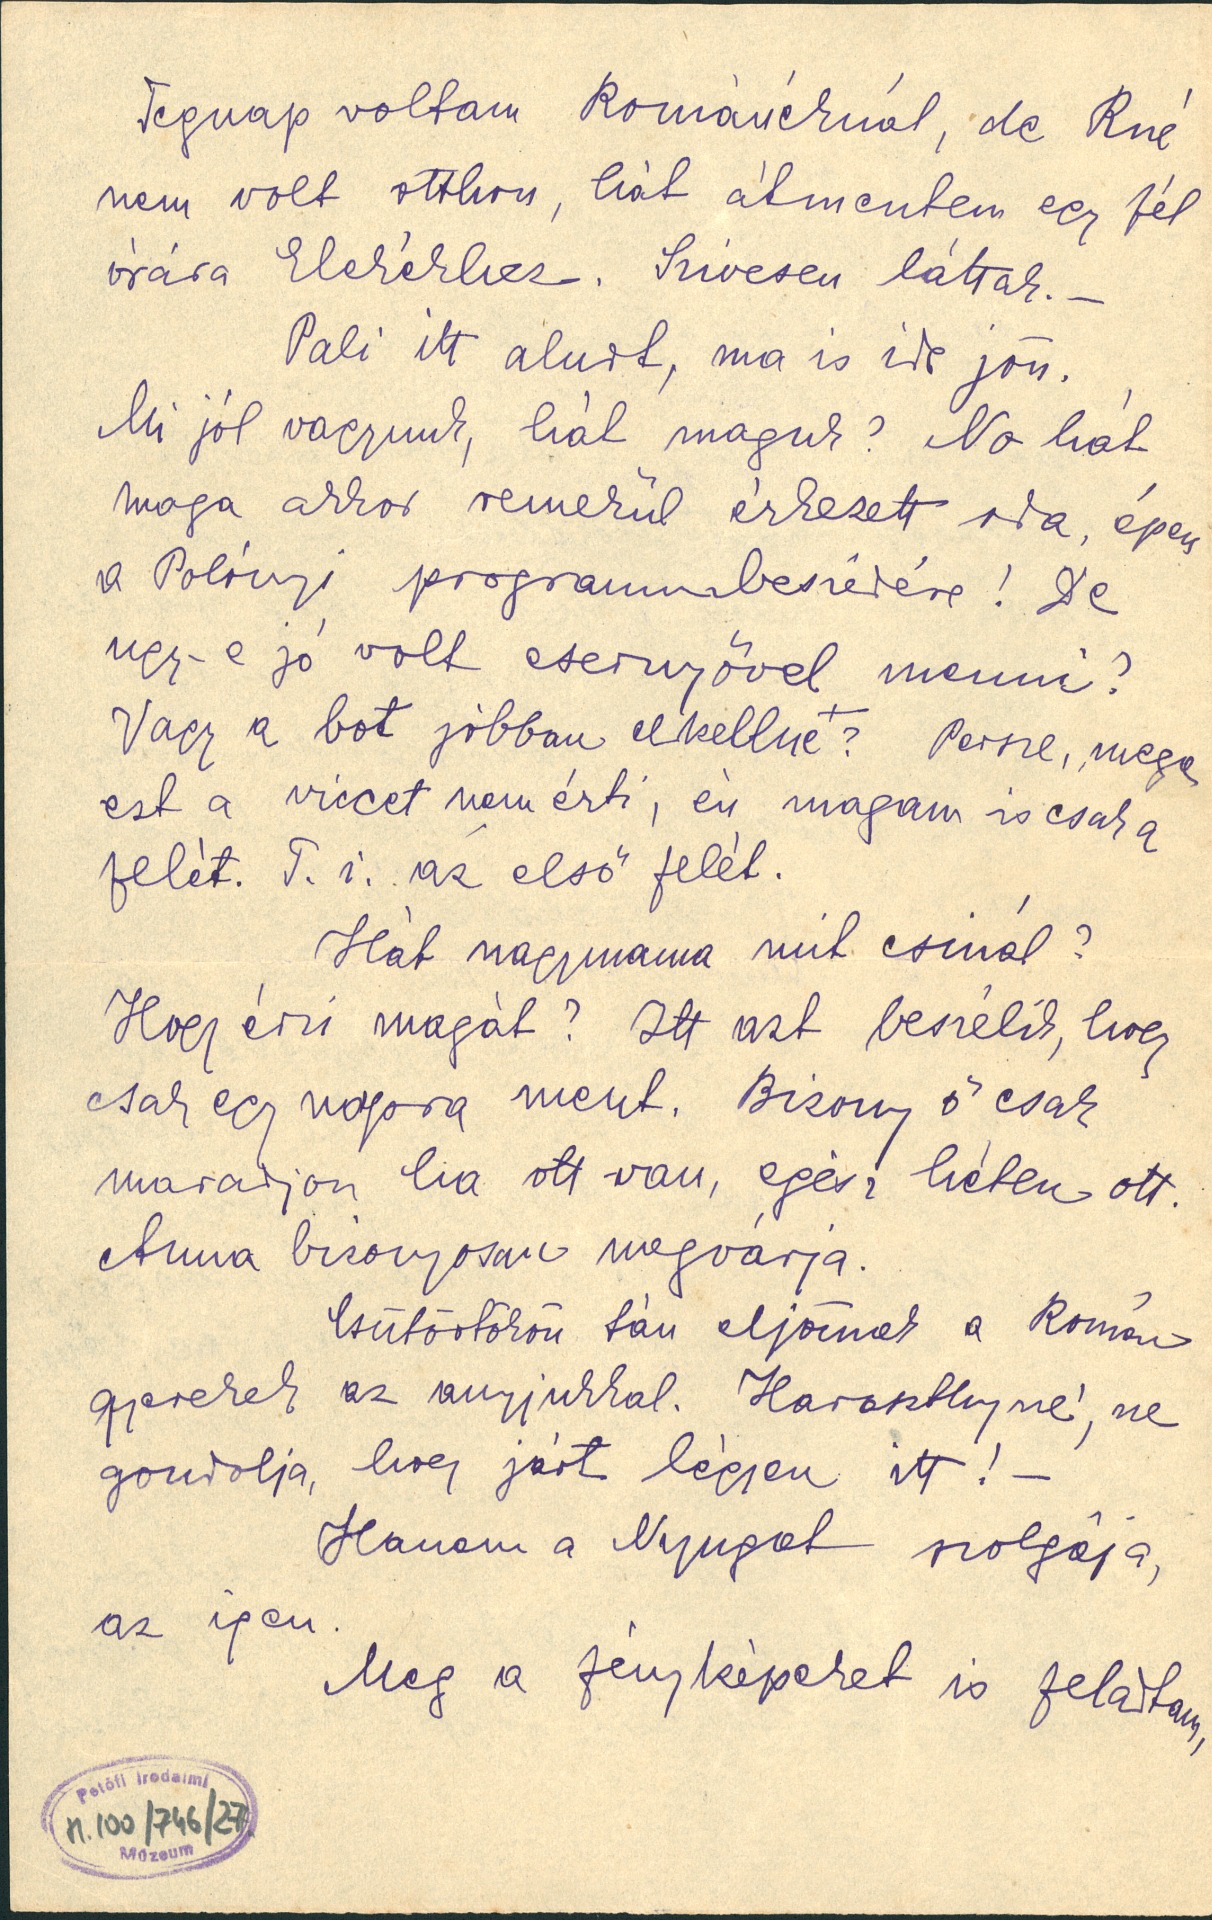 Tegnap voltam Románéknál, de Rné
nem volt otthon, hát átmentem egy fél
órára Elekékhez. Szivesen láttak. –
Pali itt aludt, ma is ide jön.
Mi jól vagyunk, hát maguk? No hát
maga akkor remekül érkezett oda, épen
a Polónyi programmbeszédére! De
ugy-e jó volt esernyővel menni?
Vagy a bot jobban elkellne? Persze, maga
ezt a viccet nem érti, én magam is csak a
felét. T. i. az első felét.
Hát nagymama mit csinál?
Hogy érzi magát? Itt azt beszélik, hogy
csak egy napra ment. Bizony ő csak
maradjon ha ott van, egész héten ott.
Anna bizonyosan megvárja.
Csütörtökön tán eljönnek a Román
gyerekek az anyjukkal. Haraszthyné, ne
gondolja, hogy járt légyen itt! –
Hanem a Nyugat szolgája,
az igen.
Meg a fényképeket is feladtam,
Petőfi Irodalmi
n. 100/746/27
Múzeum